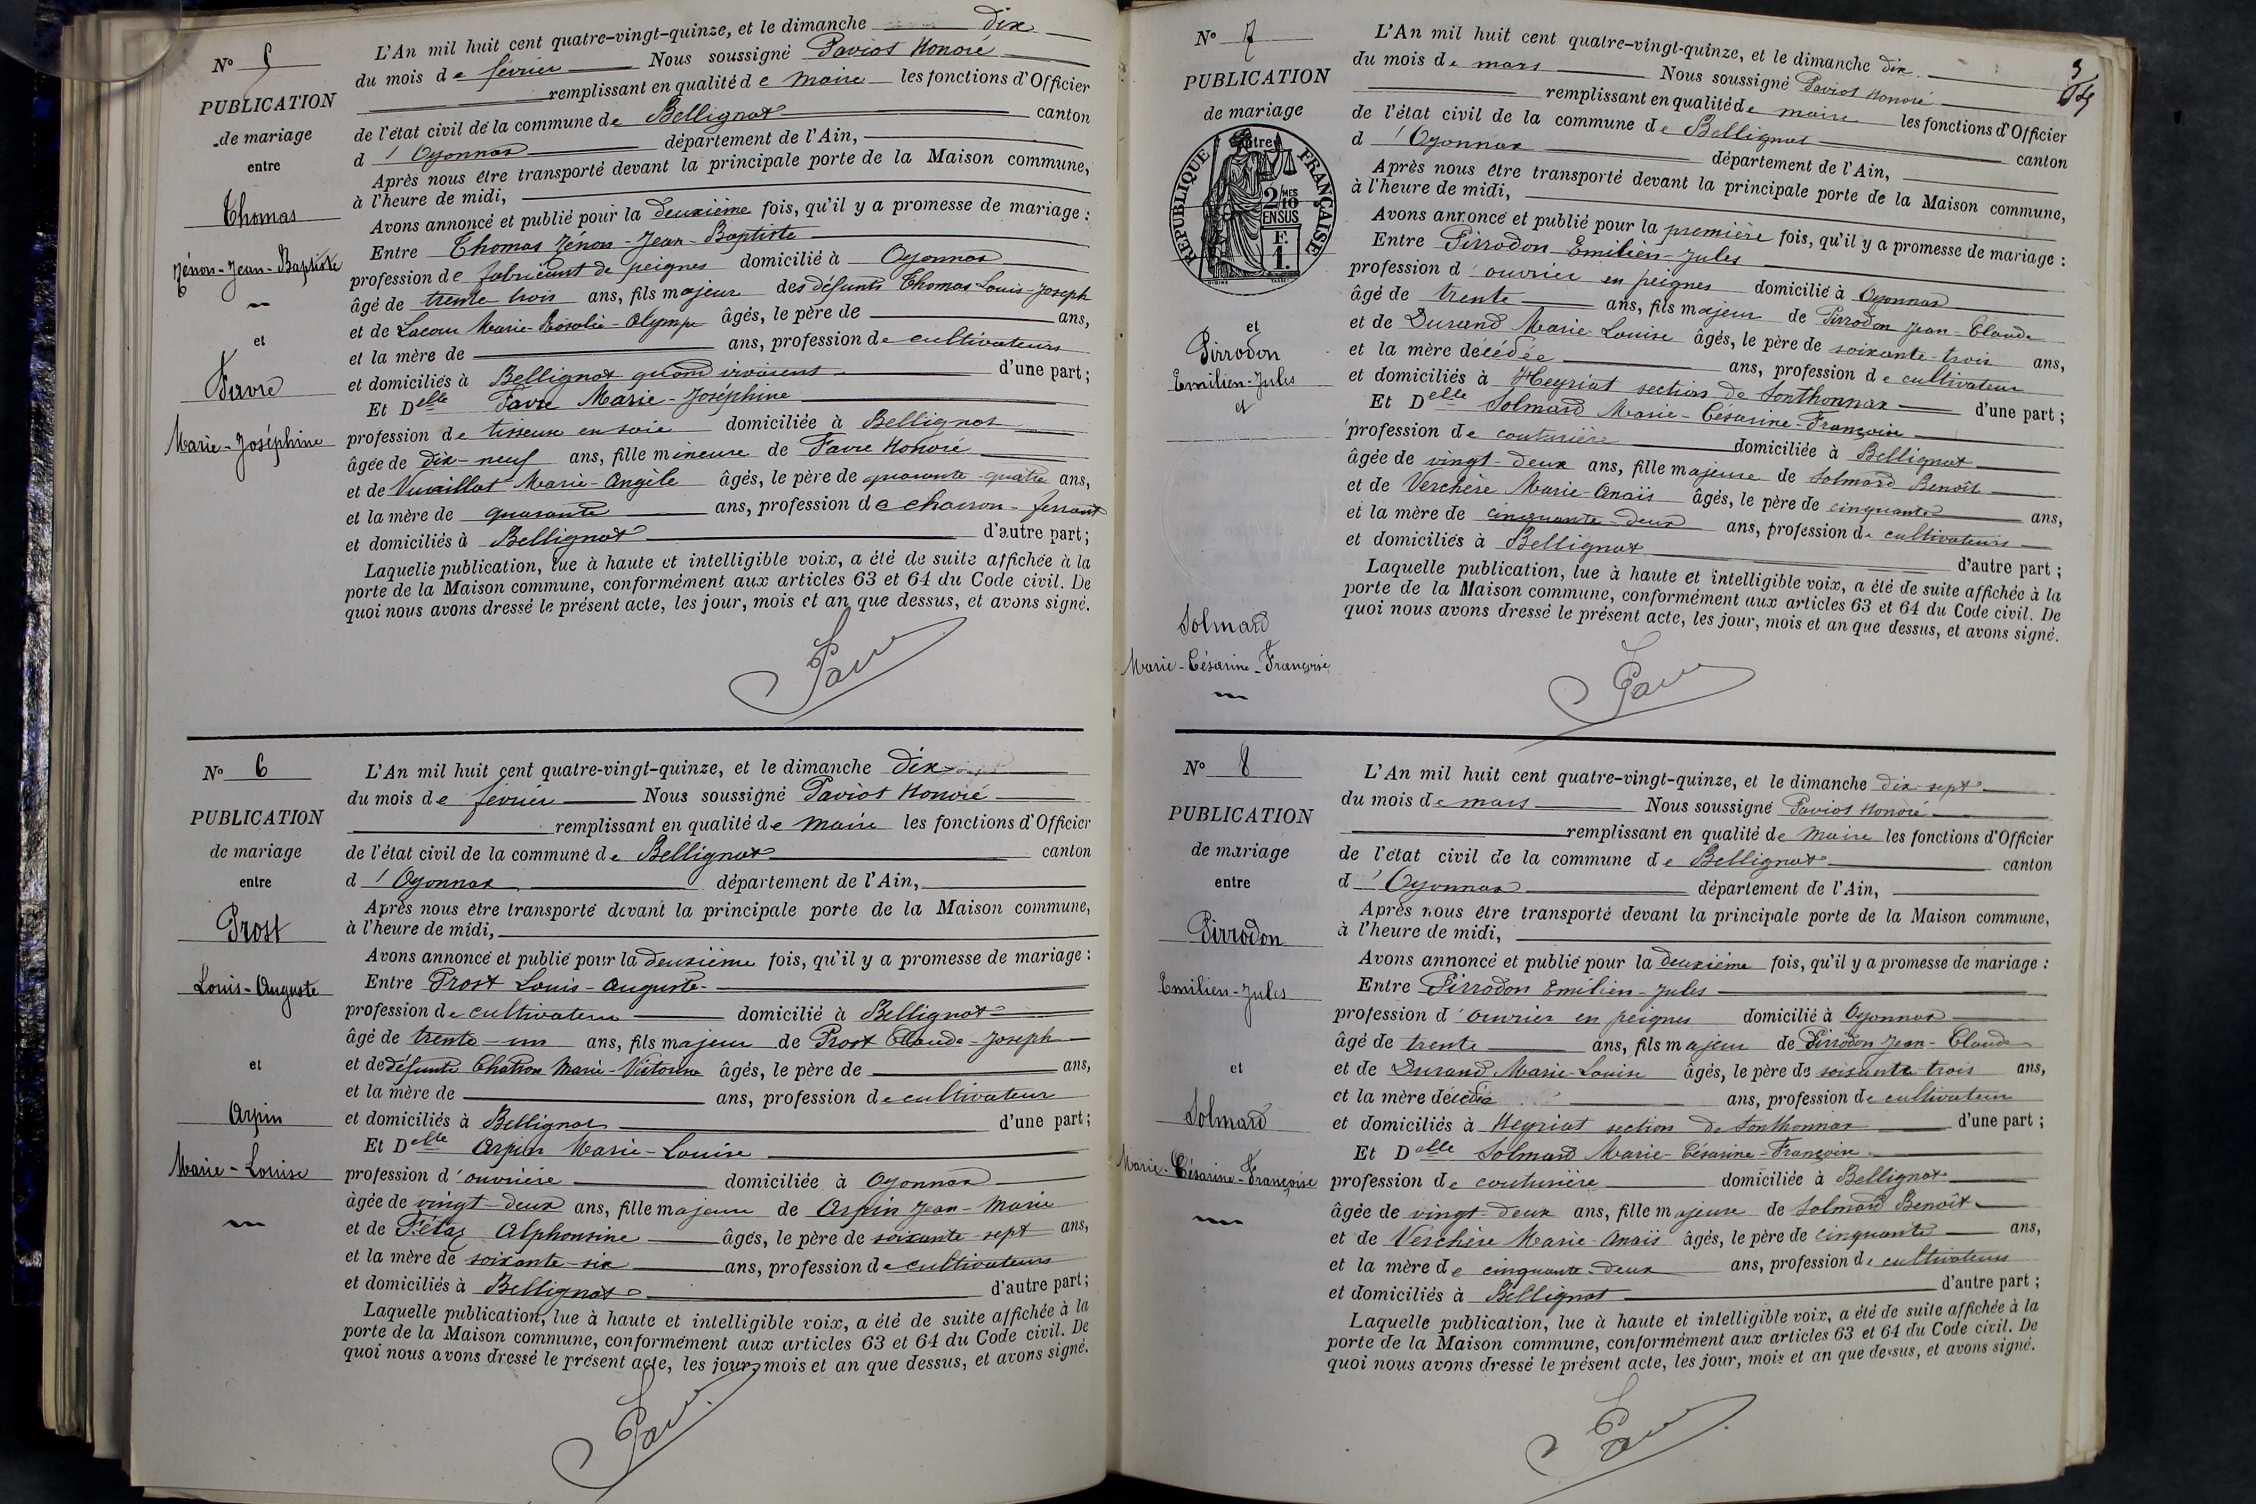 N° 5
PUBLICATION
de mariage
entre
Thomas
Zénon-Jean-Baptiste
et
Favre
Marie-Joséphine
L'An mil huit cent quatre-vingt-quinze, et le dimanche dix
du mois de février Nous soussigné Paviot Honoré
remplissant en qualité de maire les fonctions d'Officier
de l'état civil de la commune de Bellignat canton
d'Oyonnax département de l'Ain,
Après nous être transporté devant la principale porte de la Maison commune,
à l'heure de midi,
Avons annoncé et publié pour la deuxième fois, qu'il y a promesse de mariage :
Entre Thomas Zénon-Jean-Baptiste
profession de fabricant de peignes domicilié à Oyonnax
âgé de trente trois ans, fils majeur des défunts Thomas Louis-Joseph
et de Lacour Marie-Rosalie-Olympe âgés, le père de ans,
et la mère de ans, profession de cultivateurs
et domiciliés à Bellignat quand vivaient d'une part;
Et Delle Favre Marie-Joséphine
profession de tisseuse en soie domiciliée à Bellignat
âgée de dix-neuf ans, fille mineure de Favre Honoré
et de Vuaillat Marie-Angèle âgés, le père de quarante-quatre ans,
et la mère de quarante ans, profession de charron-ferrant
et domiciliés à Bellignat d'autre part;
Laquelle publication, lue à haute et intelligible voix, a été de suite affichée à la
porte de la Maison commune, conformément aux articles 63 et 64 du Code civil. De
quoi nous avons dressé le présent acte, les jour, mois et an que dessus, et avons signé.
N° 6
PUBLICATION
de mariage
entre
Prost
Louis-Auguste
et
Arpin
Marie-Louise
L'An mil huit cent quatre-vingt-quinze, et le dimanche dix
du mois de février Nous soussigné Paviot Honoré
remplissant en qualité de maire les fonctions d'Officier
de l'état civil de la commune de Bellignat canton
d'Oyonnax département de l'Ain,
Après nous être transporté devant la principale porte de la Maison commune,
à l'heure de midi,
Avons annoncé et publié pour la deuxième fois, qu'il y a promesse de mariage :
Entre Prost Louis-Auguste
profession de cultivateur domicilié à Bellignat
âgé de trente-un ans, fils majeur de Prost Claude-Joseph
et de défunte Chatron Marie-Victorine âgés, le père de ans,
et la mère de ans, profession de cultivateur
et domiciliés à Bellignat d'une part;
Et Delle Arpin Marie-Louise
profession d'ouvrière domiciliée à Oyonnax
âgée de vingt-deux ans, fille majeure de Arpin Jean-Marie
et de Pétaz Alphonsine âgés, le père de soixante-sept ans,
et la mère de soixante-six ans, profession de cultivateurs
et domiciliés à Bellignat d'autre part;
Laquelle publication, lue à haute et intelligible voix, a été de suite affichée à la
porte de la Maison commune, conformément aux articles 63 et 64 du Code civil. De
quoi nous avons dressé le présent acte, les jour, mois et an que dessus, et avons signé.
3
N° 7
PUBLICATION
de mariage
entre
RÉPUBLIQUE FRANÇAISE
2/10
EN SUS
F.
1.
et
Pirrodon
Emilien-Jules
et
Solmard
Marie-Césarine-Françoise
L'An mil huit cent quatre-vingt-quinze, et le dimanche dix
du mois de mars Nous soussigné Paviot Honoré
remplissant en qualité de maire les fonctions d'Officier
de l'état civil de la commune de Bellignat canton
d'Oyonnax département de l'Ain,
Après nous être transporté devant la principale porte de la Maison commune,
à l'heure de midi,
Avons annoncé et publié pour la première fois, qu'il y a promesse de mariage :
Entre Pirrodon Emilien-Jules
profession d'ouvrier en peignes domicilié à Oyonnax
âgé de trente ans, fils majeur de Pirrodon Jean-Claude
et de Durand Marie-Louise âgés, le père de soixante-trois ans,
et la mère décédée ans, profession de cultivateur
et domiciliés à Heyriat section de Sonthonnax d'une part;
Et Delle Solmard Marie-Césarine-Françoise
profession de couturière domiciliée à Bellignat
âgée de vingt-deux ans, fille majeure de Solmard Benoît
et de Verchère Marie-Anaïs âgés, le père de cinquante ans,
et la mère de cinquante-deux ans, profession de cultivateurs
et domiciliés à Bellignat d'autre part;
Laquelle publication, lue à haute et intelligible voix, a été de suite affichée à la
porte de la Maison commune, conformément aux articles 63 et 64 du Code civil. De
quoi nous avons dressé le présent acte, les jour, mois et an que dessus, et avons signé.
N° 8
PUBLICATION
de mariage
entre
Pirrodon
Emilien-Jules
et
Solmard
Marie-Césarine-Françoise
L'An mil huit cent quatre-vingt-quinze, et le dimanche dix-sept
du mois de mars Nous soussigné Paviot Honoré
remplissant en qualité de maire les fonctions d'Officier
de l'état civil de la commune de Bellignat canton
d'Oyonnax département de l'Ain,
Après nous être transporté devant la principale porte de la Maison commune,
à l'heure de midi,
Avons annoncé et publié pour la deuxième fois, qu'il y a promesse de mariage :
Entre Pirrodon Emilien-Jules
profession d'ouvrier en peignes domicilié à Oyonnax
âgé de trente ans, fils majeur de Pirrodon Jean-Claude
et de Durand Marie-Louise âgés, le père de soixante trois ans,
et la mère décédée ans, profession de cultivateur
et domiciliés à Heyriat section de Sonthonnax d'une part;
Et Delle Solmard Marie-Césarine-Françoise
profession de couturière domiciliée à Bellignat
âgée de vingt-deux ans, fille majeure de Solmard Benoît
et de Verchère Marie-Anaïs âgés, le père de cinquante ans,
et la mère de cinquante-deux ans, profession de cultivateurs
et domiciliés à Bellignat d'autre part;
Laquelle publication, lue à haute et intelligible voix, a été de suite affichée à la
porte de la Maison commune, conformément aux articles 63 et 64 du Code civil. De
quoi nous avons dressé le présent acte, les jour, mois et an que dessus, et avons signé.